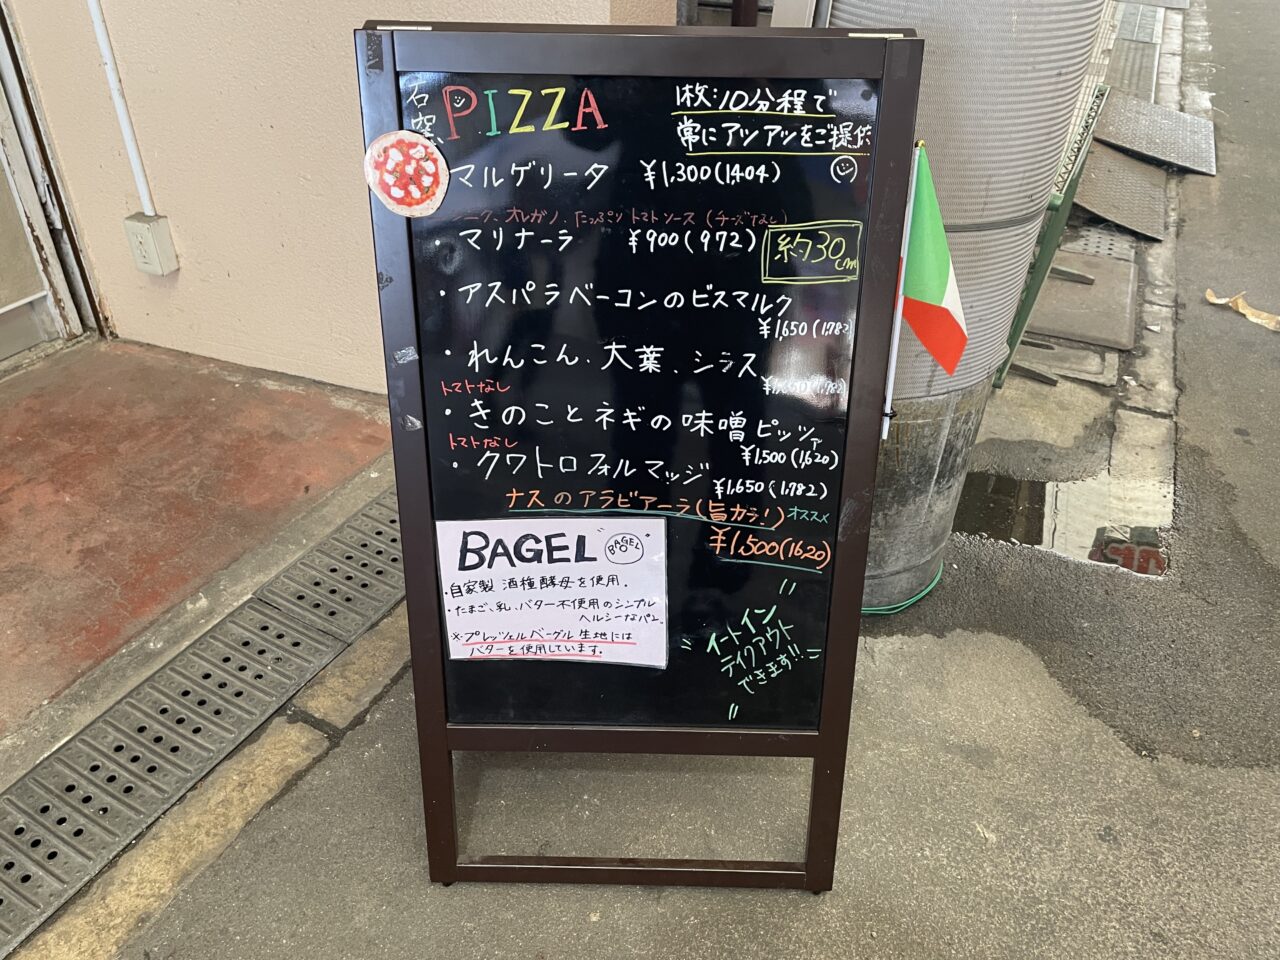 石窯 PIZZA
1枚:10分程で
常にアツアツをご提供
マルゲリータ ¥1,300(1,404)
オレガノ、たっぷりトマトソース(チーズなし)
・マリナーラ ¥900(972)
約30cm
・アスパラベーコンのビスマルク
¥1,650(1,782)
・れんこん、大葉、シラス
¥1,650(1,782)
トマトなし
・きのことネギの味噌ピッツァ
¥1,500(1,620)
トマトなし
・クワトロフォルマッジ
¥1,650(1,782)
ナスのアラビアーラ(旨カラ!)オススメ
¥1,500(1620)
BAGEL
BAGEL
・自家製 酒種酵母を使用。
・たまご、乳、バター不使用のシンプル
ヘルシーなパン。
※プレッツェルベーグル生地には
バターを使用しています。
イートイン
テイクアウト
できます!!